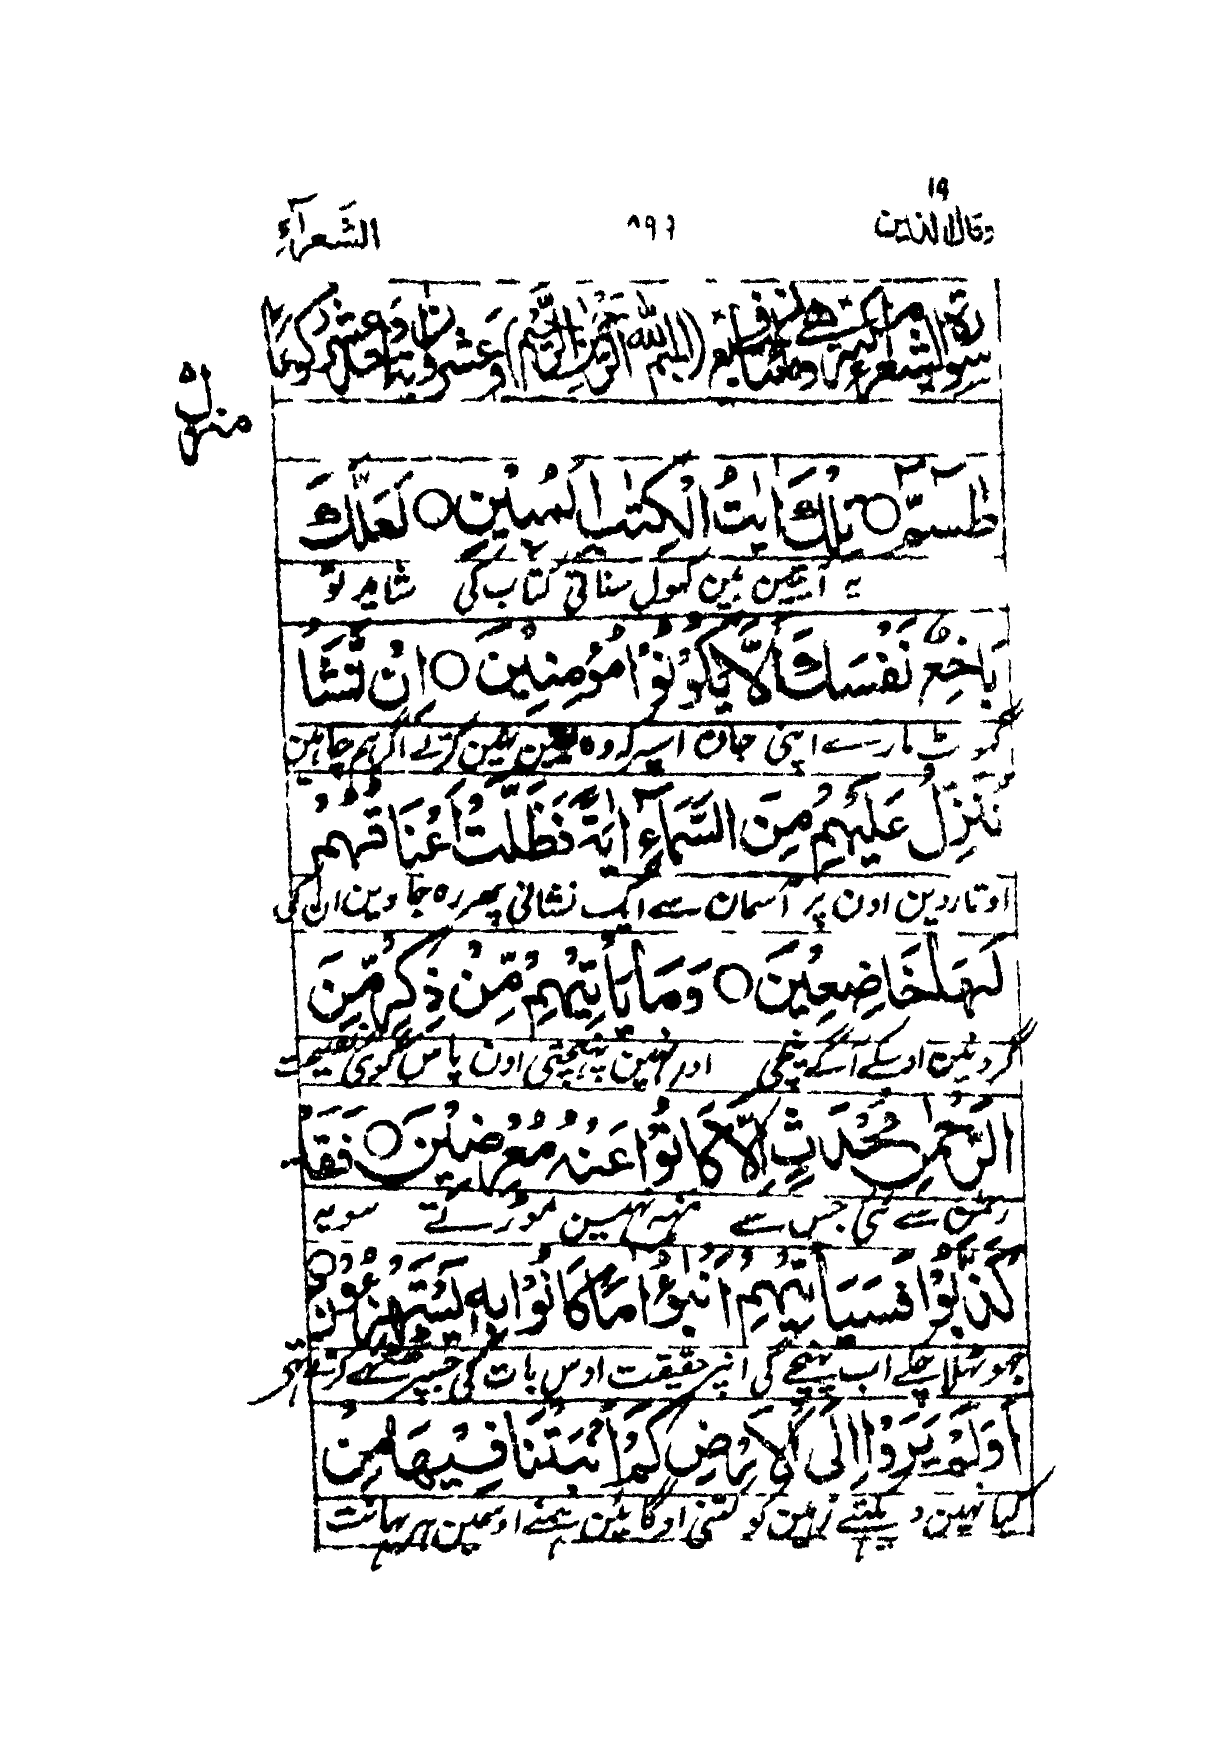 ۱۹
وقال الذین
۸۹۶
الشعرآء
سورة الشعراء مکیة (بسم الله الرحمن الرحیم)
منزل ۵
طٰسٓمّٓ ○ تِلْكَ اٰیٰتُ الْكِتٰبِ الْمُبِیْنِ ○ لَعَلَّكَ
یہ آیتین ہین کھول سناتی کتاب کی شاید تو
بَاخِعٌ نَّفْسَكَ اَلَّا یَكُوْنُوْا مُؤْمِنِیْنَ ○ اِنْ نَّشَاْ
گھونٹ مارے اپنی جان اسپر کہ وہ یقین نہین کرتے اگر ہم چاہین
نُنَزِّلْ عَلَیْهِمْ مِّنَ السَّمَآءِ اٰیَةً فَظَلَّتْ اَعْنَاقُهُمْ
اوتاردین اون پر آسمان سے ایک نشانی پھر رہ جاوین ان کی
لَهَا خَاضِعِیْنَ ○ وَمَا یَاْتِیْهِمْ مِّنْ ذِكْرٍ مِّنَ
گردنین اوسکے آگے نیچی اور نہین پہنچتی اون پاس کوئی نصیحت
الرَّحْمٰنِ مُحْدَثٍ اِلَّا كَانُوْا عَنْهُ مُعْرِضِیْنَ ○ فَقَدْ
رحمن سے نئی جس سے منہ نہین موڑتے سو یہ
كَذَّبُوْا فَسَیَاْتِیْهِمْ اَنْۢبٰٓؤُا مَا كَانُوْا بِهٖ یَسْتَهْزِءُوْنَ ○
جھوٹھلا چکے اب پہنچے گی انپر حقیقت اوس بات کی جسپر ٹھٹھے کرتے تھے
اَوَلَمْ یَرَوْا اِلَى الْاَرْضِ كَمْ اَنْۢبَتْنَا فِیْهَا مِنْ
کیا نہین دیکھتے زمین کو کتنی اوگائین ہمنے اوسمین ہر بھانت